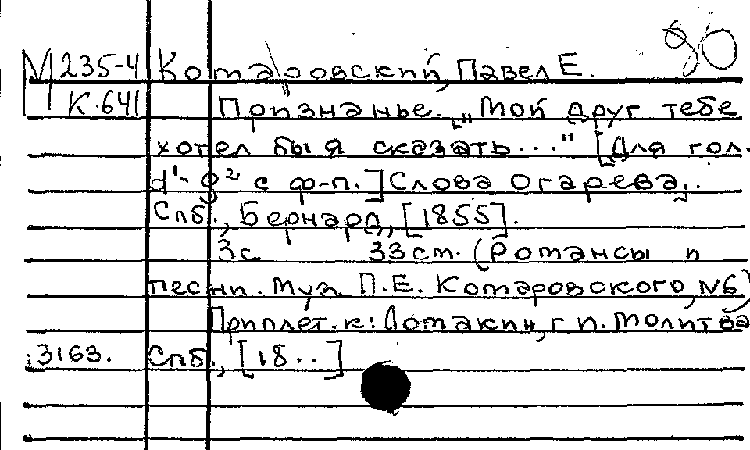 М 235-4 Комаровский, Павел Е. 80
К-641 Признанье. "Мой друг тебе
хотел бы я сказать..." [Для гол.
d¹- g² с ф-п.] Слова Огарева.
Спб., Бернард, [1855].
3с 33см. (Романсы и
песни. Муз. П.Е. Комаровского, №6)
Приплет. к: Ломакин, Г. И. Молитва
3163. Спб., [18..]